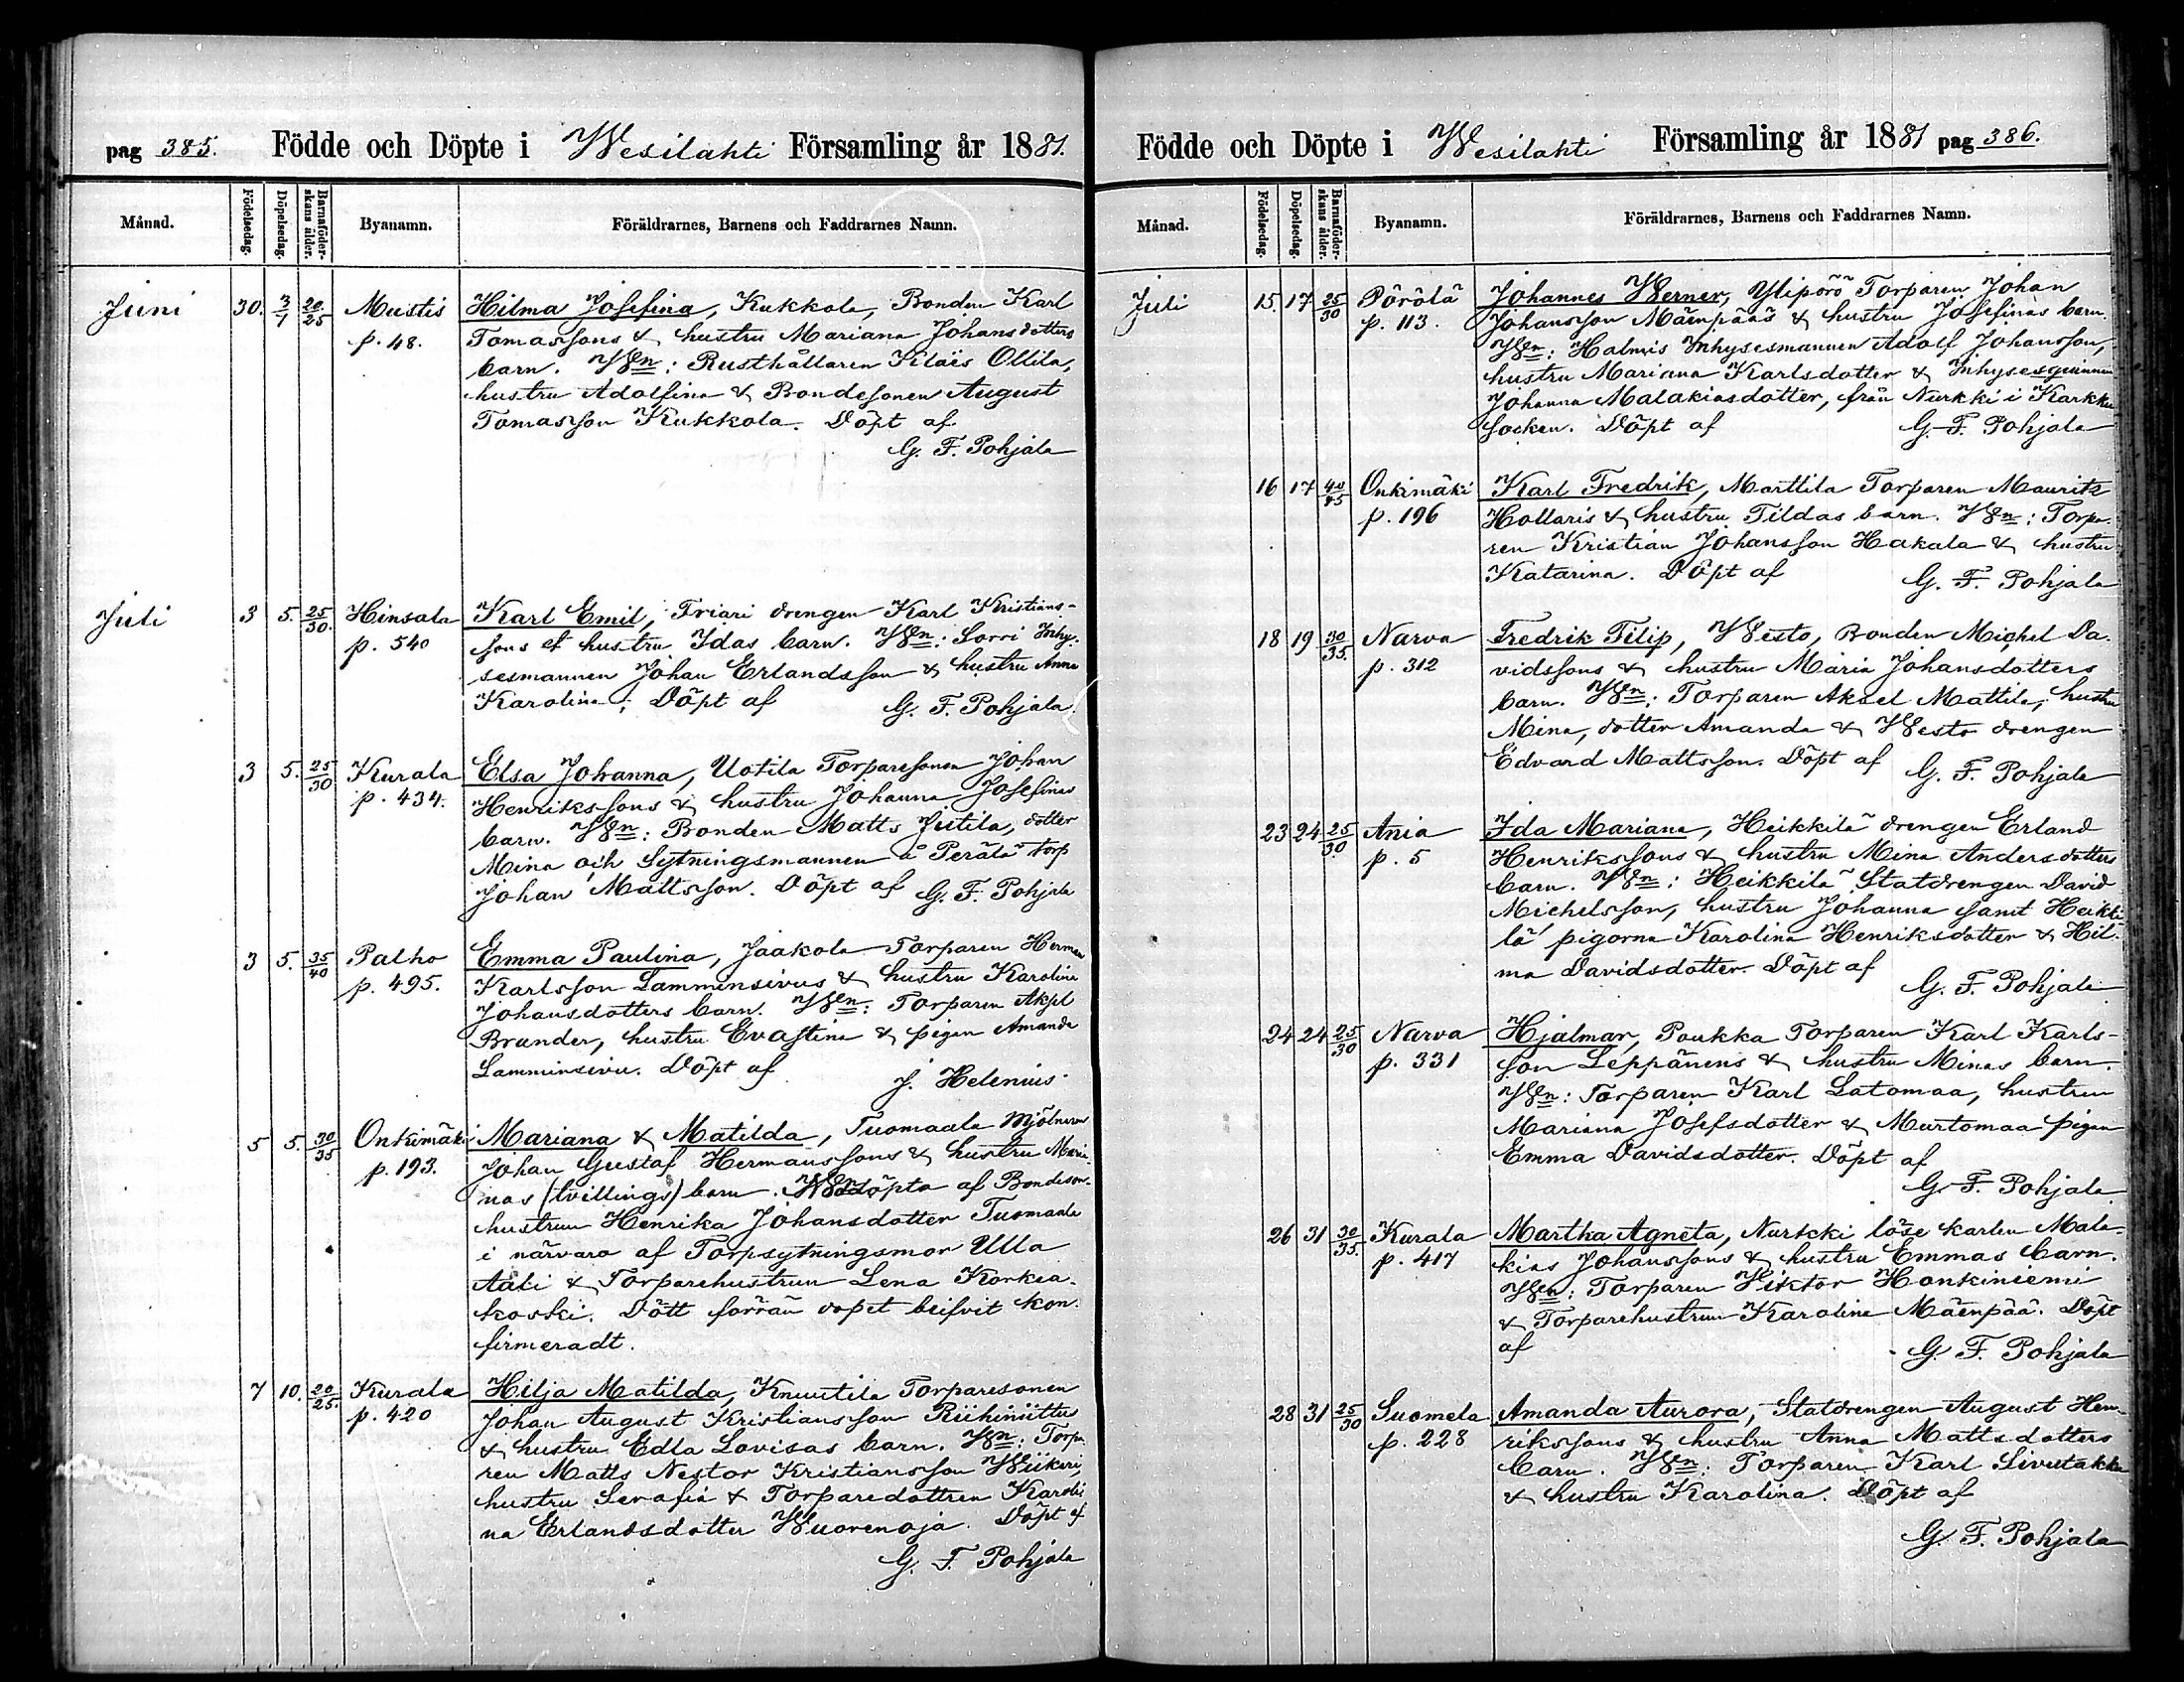 pag 385. Födde och Döpte i Wesilahti Församling år 1881.
Månad. Födelsedag. Döpelsedag. Barnaföderskans ålder. Byanamn. Föräldrarnes, Barnens och Faddrarnes Namn.
Juni 30. 3/7 20/25 Mustis Hilma Josefina, Kukkola, Bonden Karl
p. 48. Tomassons & hustru Mariana Johansdotters
barn. Wn: Rusthållaren Klaës Ollila,
hustru Adolfina & Bondesonen August
Tomasson Kukkola. Döpt af
G. F. Pohjala
Juli 3 5. 25/30. Hinsala Karl Emil, Friari drengen Karl Kristians-
p. 540 sons et hustru Idas barn. Wn: Sorri Inhy-
sesmannen Johan Erlandsson & hustru Anna
Karolina; Döpt af G. F. Pohjala.
3 5. 25/30 Kurala Elsa Johanna, Uotila Torparesonen Johan
p. 434. Henrikssons & hustru Johanna Josefinas
barn. Wn: Bonden Matts Jutila, dotter
Mina och Sytningsmannen å Perälä torp
Johan Mattsson. Döpt af G. F. Pohjala
3 5. 35/40 Palho Emma Paulina, Jaakola Torparen Herman
p. 495. Karlsson Lamminsivus & hustru Karolina
Johansdotters barn. Wn: Torparen Aksel
Brander, hustru Evastina & pigan Amanda
Lamminsivu. Döpt af J. Helenius
5 5. 30/35 Onkimäki Mariana & Matilda, Tuomaala Mjölnaren
p. 193. Johan Gustaf Hermanssons & hustru Mari-
nas (tvillings) barn. Nöddöpta af Bondeson-
hustrun Henrika Johansdotter Tuomaala
i närvaro af Torpsytningsmor Ulla
Aali & Torparehustrun Lena Korkia-
koski. Dött förrän dopet blifvit kon-
firmeradt.
7 10. 20/25. Kurala Hilja Matilda, Knuutila Torparesonen
p. 420 Johan August Kristiansson Riihiniittus
& hustru Edla Lovisas barn. Wn: Torpa-
ren Matts Nestor Kristiansson Wiikeri,
hustru Serafia & Torparedottren Karoli-
na Erlandsdotter Wuorenoja. Döpt af
G. F. Pohjala
Födde och Döpte i Wesilahti Församling år 1881 pag 386.
Månad. Födelsedag. Döpelsedag. Barnaföderskans ålder. Byanamn. Föräldrarnes, Barnens och Faddrarnes Namn.
Juli 15. 17 25/30 Pörölä Johannes Werner, Ylipörö Torparen Johan
p. 113. Johansson Mäenpääs & hustru Josefinas barn.
Wn: Halmis Inhysesmannen Adolf Johansson,
hustru Mariana Karlsdotter & Inhysesqvinnan
Johanna Malakiasdotter, från Nurkki i Karkku
socken. Döpt af G. F. Pohjala
16 17 40/45 Onkimäki Karl Fredrik, Marttila Torparen Maurits
p. 196 Hollaris & hustru Tildas barn. Wn: Torpa-
ren Kristian Johansson Hakala & hustru
Katarina. Döpt af G. F. Pohjala
18 19 30/35. Narva Fredrik Filip, Westo, Bonden Michel Da-
p. 312 vidssons & hustru Maria Johansdotters
barn. Wn: Torparen Aksel Mattila, hustru
Mina, dotter Amanda & Westo drengen
Edvard Mattsson. Döpt af G. F. Pohjala
23 24 25/30. Ania Ida Mariana, Heikkilä drengen Erland
p. 5 Henrikssons & hustru Mina Andersdotters
barn. Wn: Heikkilä Statdrengen David
Michelsson, hustru Johanna samt Heikki-
lä pigorna Karolina Henriksdotter & Hil-
ma Davidsdotter. Döpt af
G. F. Pohjala
24 24 25/30 Narva Hjalmar, Paukka Torparen Karl Karls-
p. 331 son Leppänens & hustru Minas barn.
Wn: Torparen Karl Latomaa, hustru
Mariana Josefsdotter & Murtomaa pigan
Emma Davidsdotter. Döpt af
G. F. Pohjala
26 31 30/35. Kurala Martha Agneta, Nurkki löse karlen Mala-
p. 417 kias Johanssons & hustru Emmas barn.
Wn: Torparen Viktor Honkiniemi
& Torparehustrun Karolina Mäenpää. Döpt
af G. F. Pohjala
28 31 25/30 Suomela Amanda Aurora, Statdrengen August Hen-
p. 228 rikssons & hustru Anna Mattsdotters
barn. Wn: Torparen Karl Sivutakka
& hustru Karolina. Döpt af
G. F. Pohjala